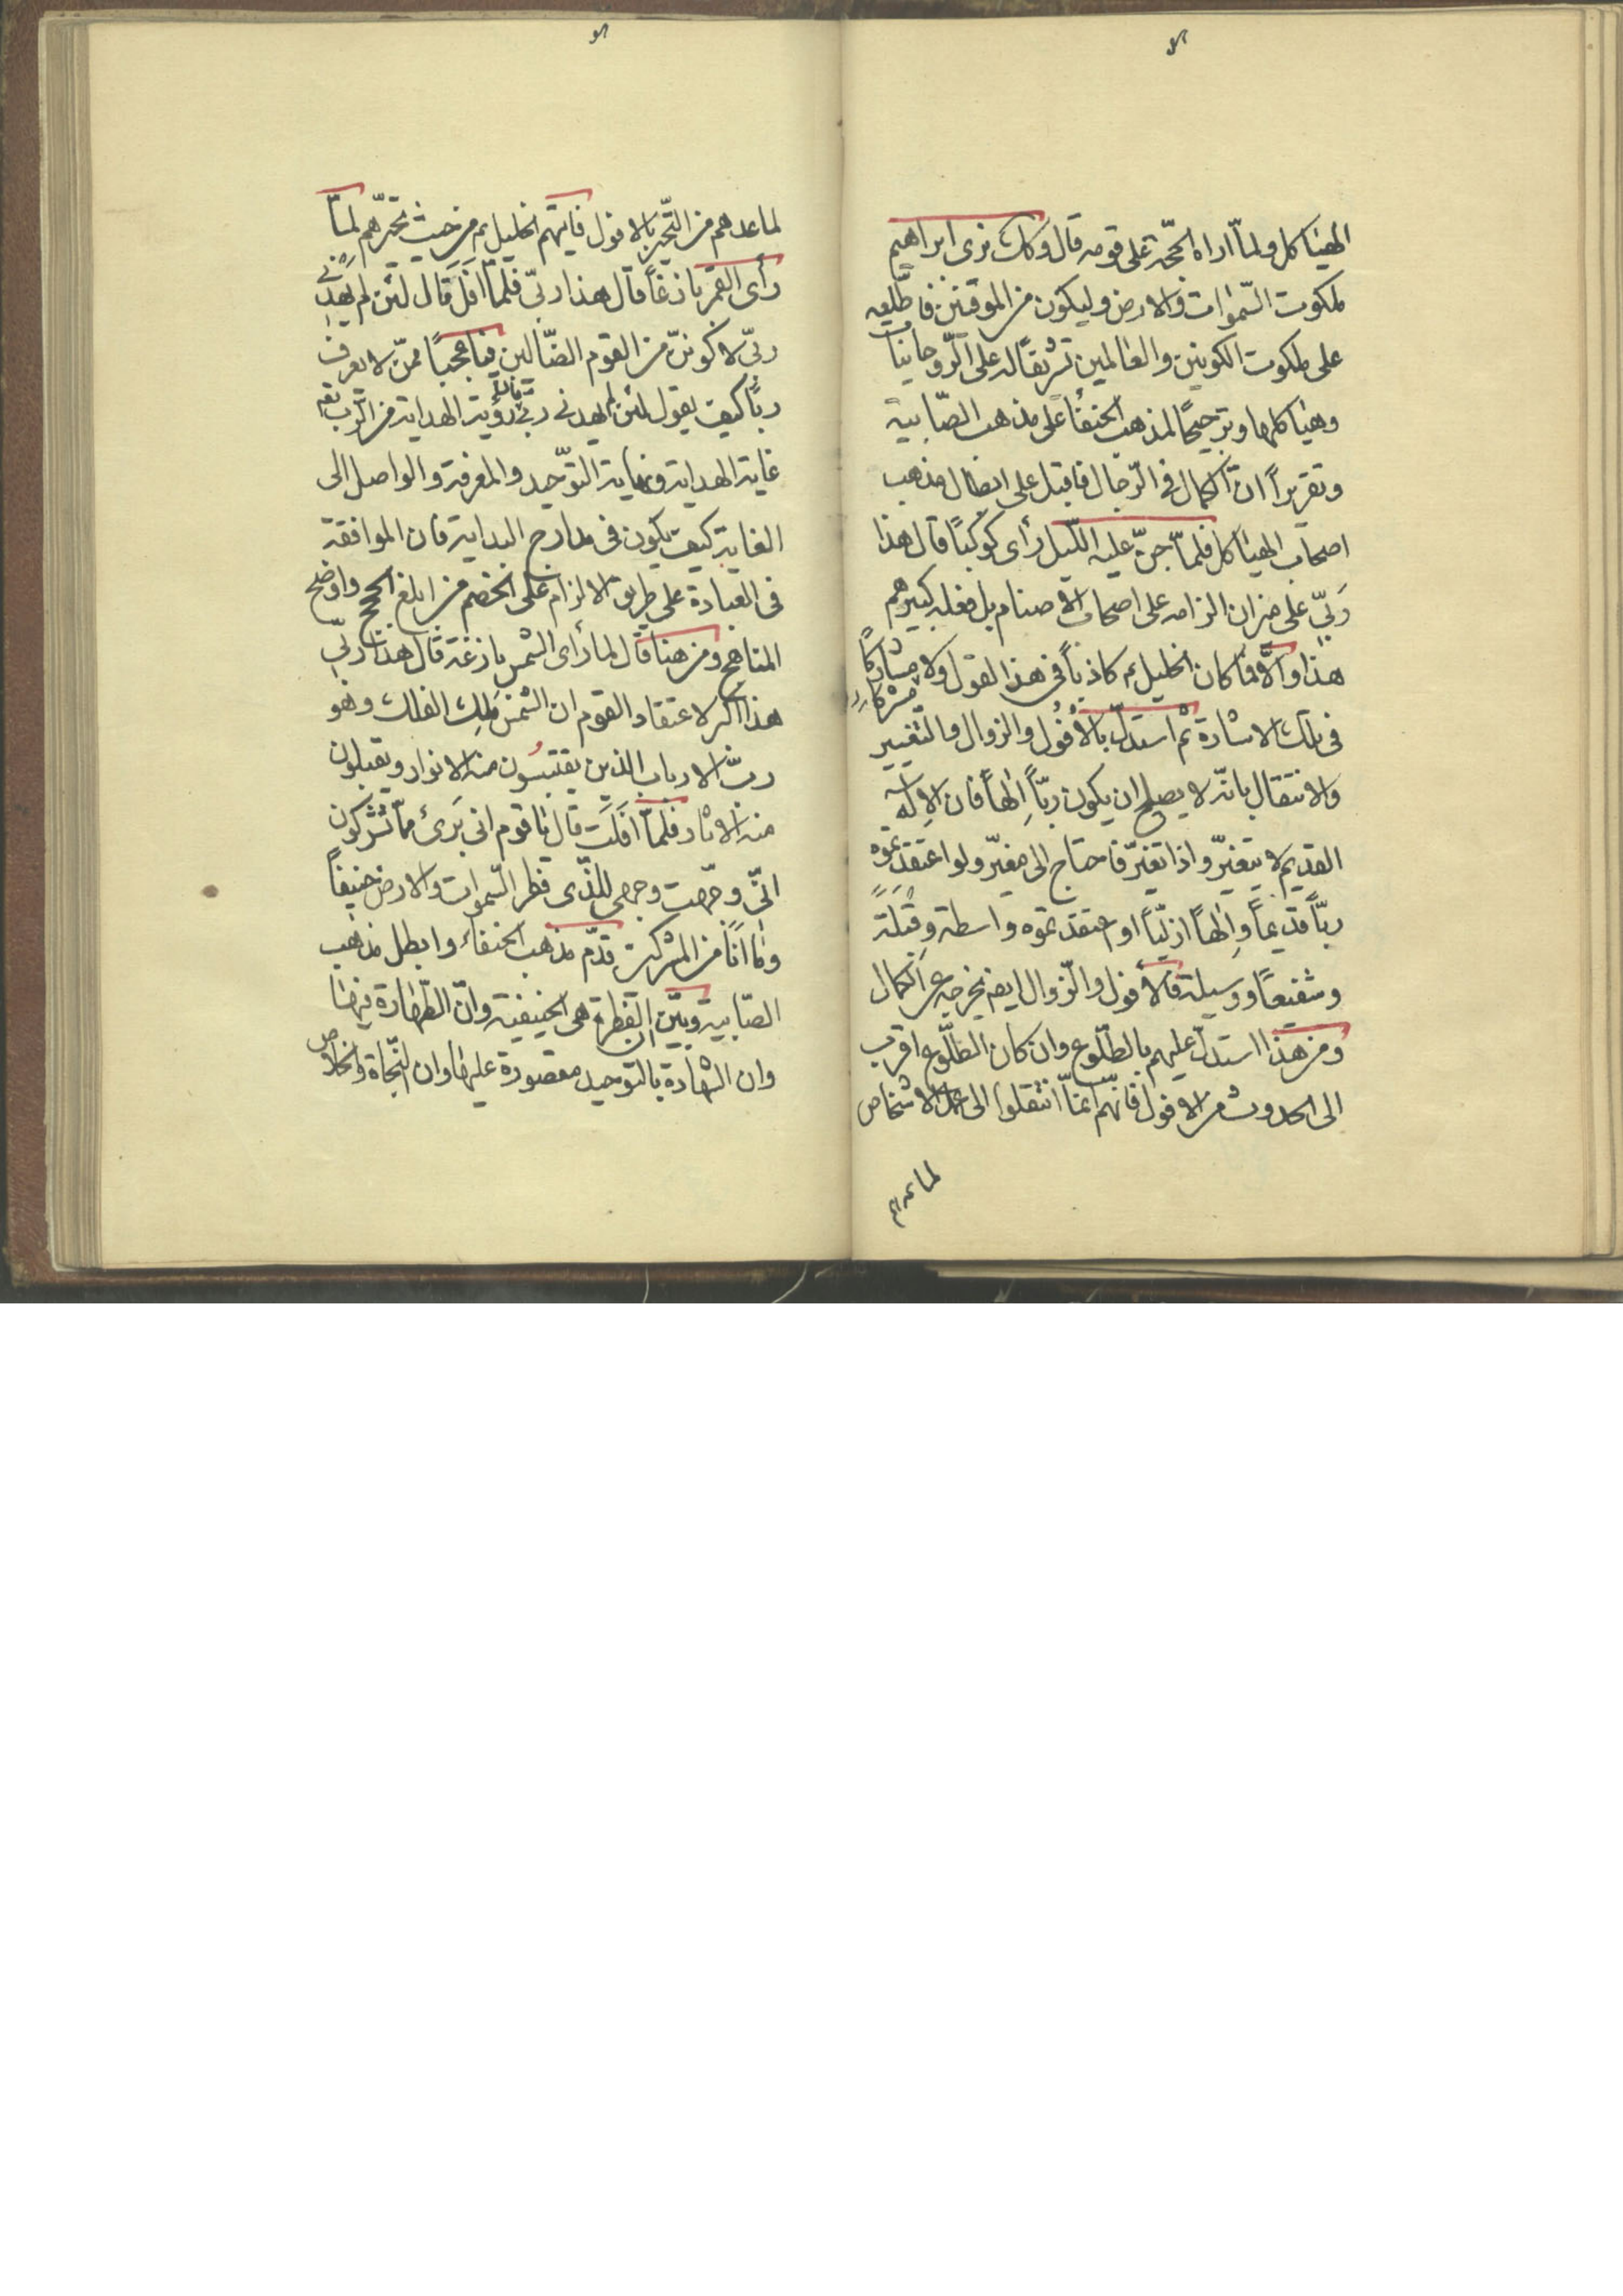 الهياكل ولما اراه الحجّة على قومه قال وكذلك نرى ابراهيم
ملكوت السّموات والارض وليكون من الموقنين فاطّلعه
على ملكوت الكونين والعالمين تشريفاً له على الرّوحانيات
وهياكلها وترجيحاً لمذهب الحنفاء على مذهب الصّابية
وتقريراً ان الكمال فى الرّجال فاقبل على ابطال مذهب
اصحاب الهياكل فلمّا جنّ عليه اللّيل رأى كوكباً قال هذا
ربّي على ميزان الزامه على اصحاب الاصنام بل فعله كبيرهم
هذا والّا فما كان الخليل ع كاذباً فى هذا القول ولا مشاركاً
مشركا
فى تلك الاشارة ثم استدلّ بالأفُول والزوال والتّغيير
والانتقال بانّه لا يصلح ان يكون ربّاً إلهاً فان الإله
القديم لا يتغيّر واذا تغيّر فاحتاج الى مغيّر ولو اعتقدتموه
ربّاً قديماً وإلهاً ازليّاً او اعتقدتموه واسطة وقبلة
وشفيعاً ووسيلة فالأفول والزّوال ايضا يخرجه عن الكمال
ومن هذا استدلّ عليهم بالطّلوع وان كان الطّلوع اقرب
الى الحدوث من الافول فانّهم انما انتقلوا الى عمل الاشخاص
لما عدهم
لما عدهم من التّحيّر بالافول فاتيهم الخليل ع من حيث تحيّرهم لمّا
رأى القمر بازغاً قال هذا ربّي فلمّا افَلَ قال لئن لم يهدني
ربّي لاكوننّ من القوم الضّالين فيا عجباً ممّن لا يعرف
ربّاً كيف يقول لئن لم يهدنى ربّي رؤية الهداية من الرّب تع
غاية الهداية ونهاية التوّحيد والمعرفة والواصل الى
الغاية كيف يكون فى مدارج البداية فان الموافقة
فى العبادة على طريق الالزام على الخصم من ابلغ الحجج واوضح
المناهج ومن هنا قال لما رأى الشمس بازغة قال هذا ربّي
هذا اكبر لاعتقاد القوم ان الشمس ملك الفلك وهو
ربّ الارباب الذين يقتبسُون منه الانوار ويقبلون
منه الاثار فلمّا افَلَت قال يا قوم انى بَرىء ممّا تشركون
انّى وجّهت وجهى للّذى فطر السّموات والارض حنيفاً
وما انَا من المشركين قدّم مذهب الحنفاء وابطل مذهب
الصّابية وبيّن ان الفطرة هى الحنيفية وانّ الطّهارة فيها
وان الشهادة بالتوحيد مقصورة عليها وان النّجاة والخلاص